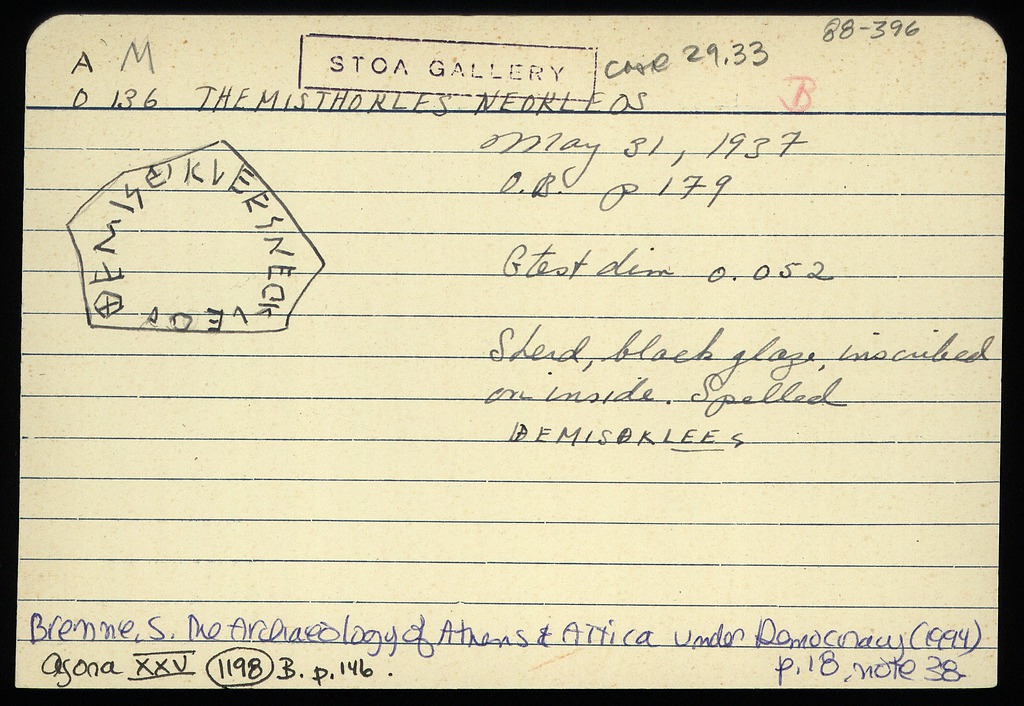 88-396
A M STOA GALLERY case 29.33
O 136 THEMISTHOKLES NEOKLEOS B
May 31, 1937
O.B. p 179
Gtest dim 0.052
Sherd, black glaze, inscribed
on inside. Spelled
ΘEMISΘKLEES
Brenne, S. The Archaeology of Athens & Attica under Democracy (1994)
p.18, note 38
Agora XXV 1198 B. p. 146.